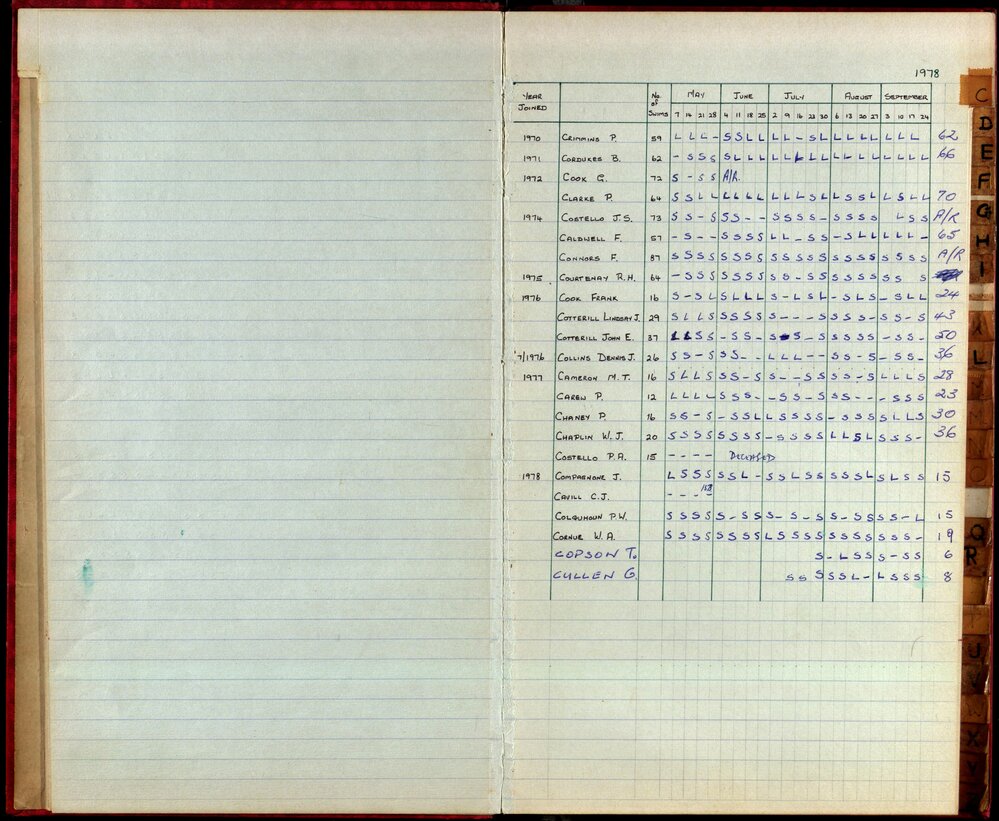 1978
YEAR JOINED No. of SWIMS MAY JUNE JULY AUGUST SEPTEMBER
7 14 21 28 4 11 18 25 2 9 16 23 30 6 13 20 27 3 10 17 24
1970 CRIMMINS P. 59 L L L - S S L L L L - S L L L L L L L L 62
1971 CORDUKES B. 62 - S S S S L L L L L L L L L L L L L L L L 66
1972 COOK G. 72 S - S S A/R.
CLARKE P. 64 S S L L L L L L L L L S L L S S L L S L L 70
1974 COSTELLO J.S. 73 S S - S S S - - S S S S - S S S S L S S A/R
CALDWELL F. 57 - S - - S S S S L L - S S - S L L L L L - 65
CONNORS F. 87 S S S S S S S S S S S S S S S S S S S S S A/R
1975 COURTENAY R.H. 64 - S S S S S S S S S - S S S S S S S S S
1976 COOK FRANK 16 S - S L S L L L S - L S L - S L S - S L L 24
COTTERILL LINDSAY J. 29 S L L S S S S S S - - - S S S S S - S S - S 43
COTTERILL JOHN E. 37 L L S S - S S - S S - S S S S S - S S - 50
7/1976 COLLINS DENNIS J. 26 S S - S S S - - L L L - - S S - S - S S - 36
1977 CAMERON M.T. 16 S L L S S S - S S - - S S S S - S L L L S 28
CAREN P. 12 L L L L S S S - - S S - S S S - - - S S S 23
CHANEY P. 16 S S - S - S S L L S S S S - S S S S L L S 30
CHAPLIN W.J. 20 S S S S S S S S - S S S S L L S L S S S - 36
COSTELLO P.A. 15 - - - - DECEASED
1978 COMPAGNONE J. L S S S S S L - S S L S S S S S L S L S S 15
CAVILL C.J. - - - -
COLQUHOUN P.W. S S S S S - S S S - S - S S - S S S S - L 15
CORNUE W.A. S S S S S S S S L S S S S S S S S S S S - 19
COPSON T. S - L S S S - S S 6
CULLEN G. S S S S S L - L S S S 8
C
D
E
F
G
H
I
L
M
N
Q
R
T
U
V
W
X
Y